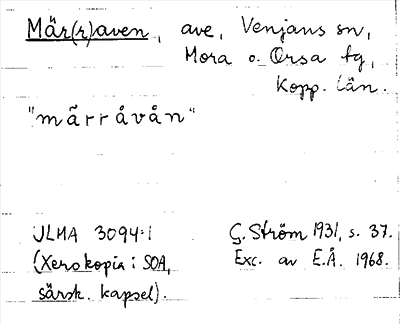 Mär(r)aven, ave, Venjans sn,
Mora o. Orsa tg,
Kopp. län.
"mä̃rråvån"
ULMA 3094:1
(Xerokopia i SOA,
särsk. kapsel).
G. Ström 1931, s. 37.
Exc. av E.Å. 1968.